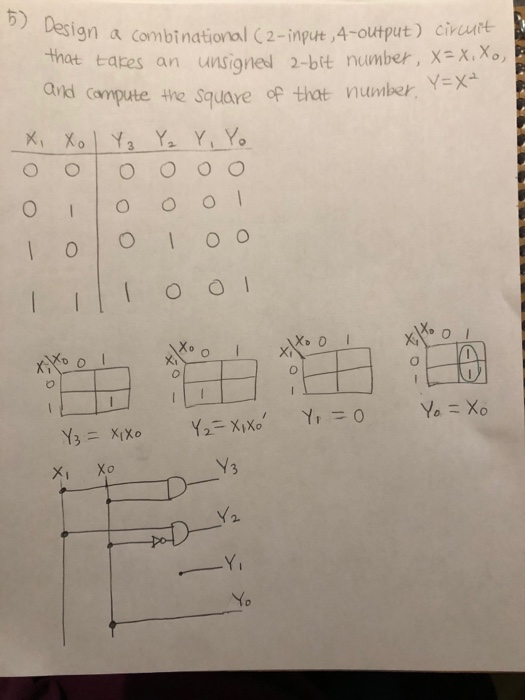 5) Design a combinational (2-input, 4-output) circuit
that takes an unsigned 2-bit number, X=X₁X₀,
and compute the square of that number. Y=X²
X₁ X₀ Y₃ Y₂ Y₁ Y₀
0 0 0 0 0 0
0 1 0 0 0 1
1 0 0 1 0 0
1 1 1 0 0 1
X₁\X₀ 0 1
0
1 1
Y₃ = X₁X₀
X₁\X₀ 0 1
0
1 1
Y₂ = X₁X₀'
X₁\X₀ 0 1
0
1
Y₁ = 0
X₁\X₀ 0 1
0 1
1 1
Y₀ = X₀
X₁ X₀ Y₃
Y₂
Y₁
Y₀